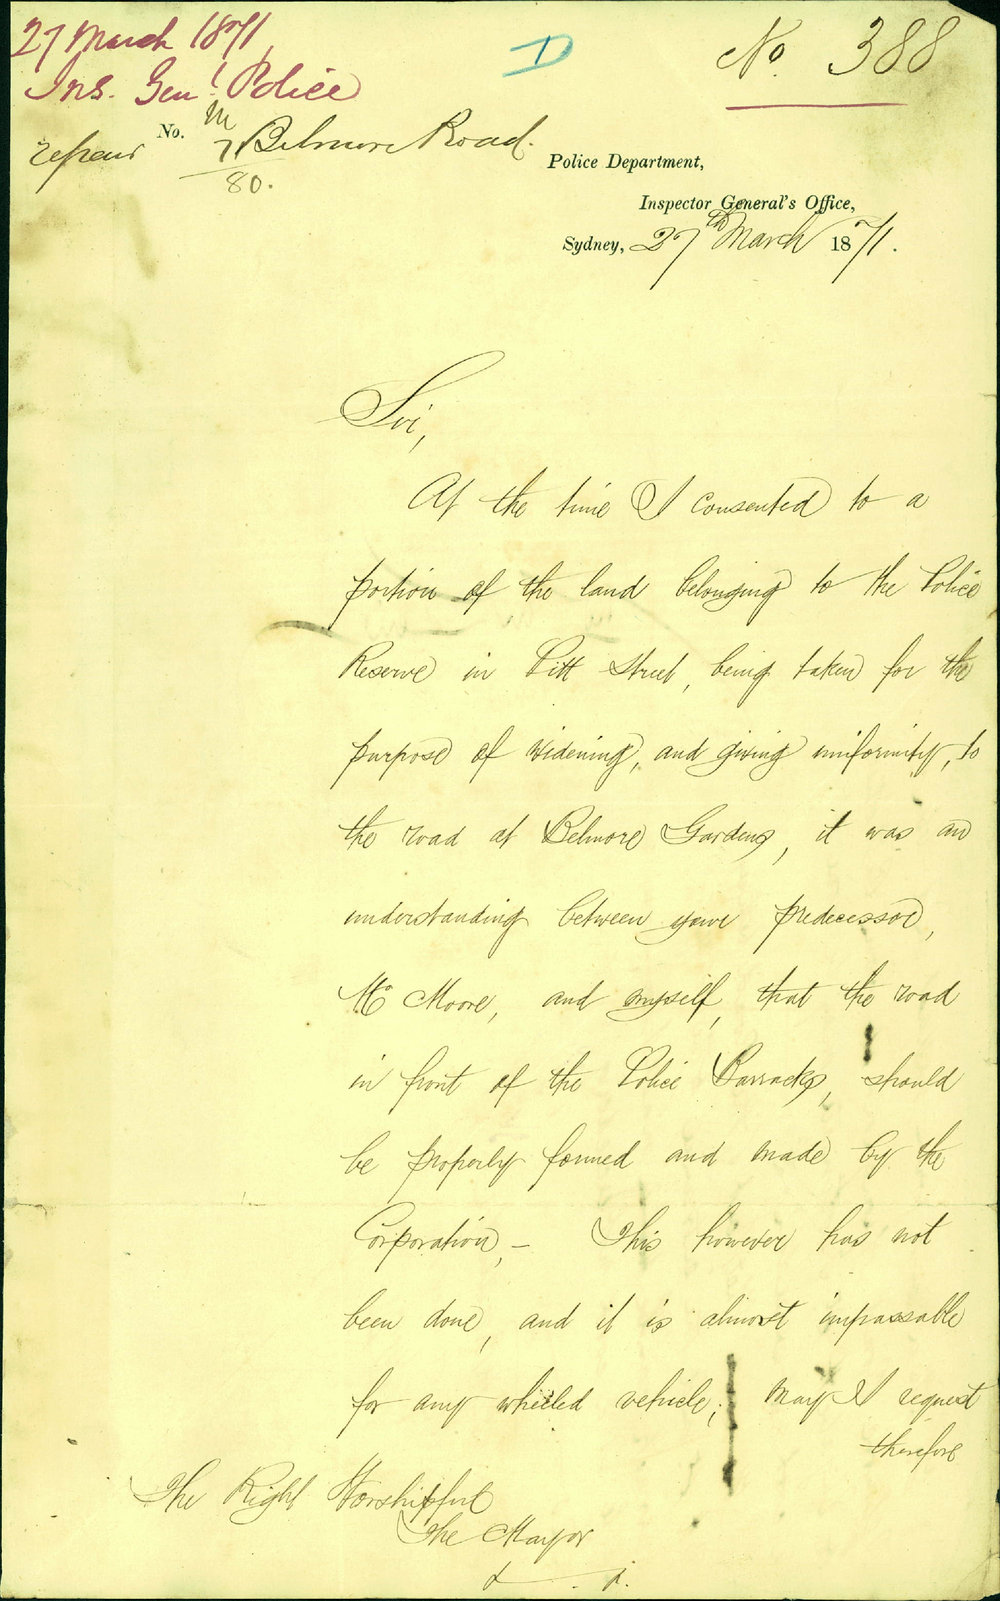 27 March 1871
Ins. Genl Police
D
No. 388
repair
No. M 71
80.
Belmore Road.
Police Department,
Inspector General's Office,
Sydney, 27th March 1871.
Sir,
At the time I consented to a
portion of the land belonging to the Police
Reserve in Pitt Street, being taken for the
purpose of widening, and giving uniformity, to
the road at Belmore Gardens, it was an
understanding between your predecessor,
Mr Moore, and myself, that the road
in front of the Police Barracks, should
be properly formed and made by the
Corporation, – This however has not
been done, and it is almost impassable
for any wheeled vehicle; may I request
therefore
The Right Worshipful
The Mayor